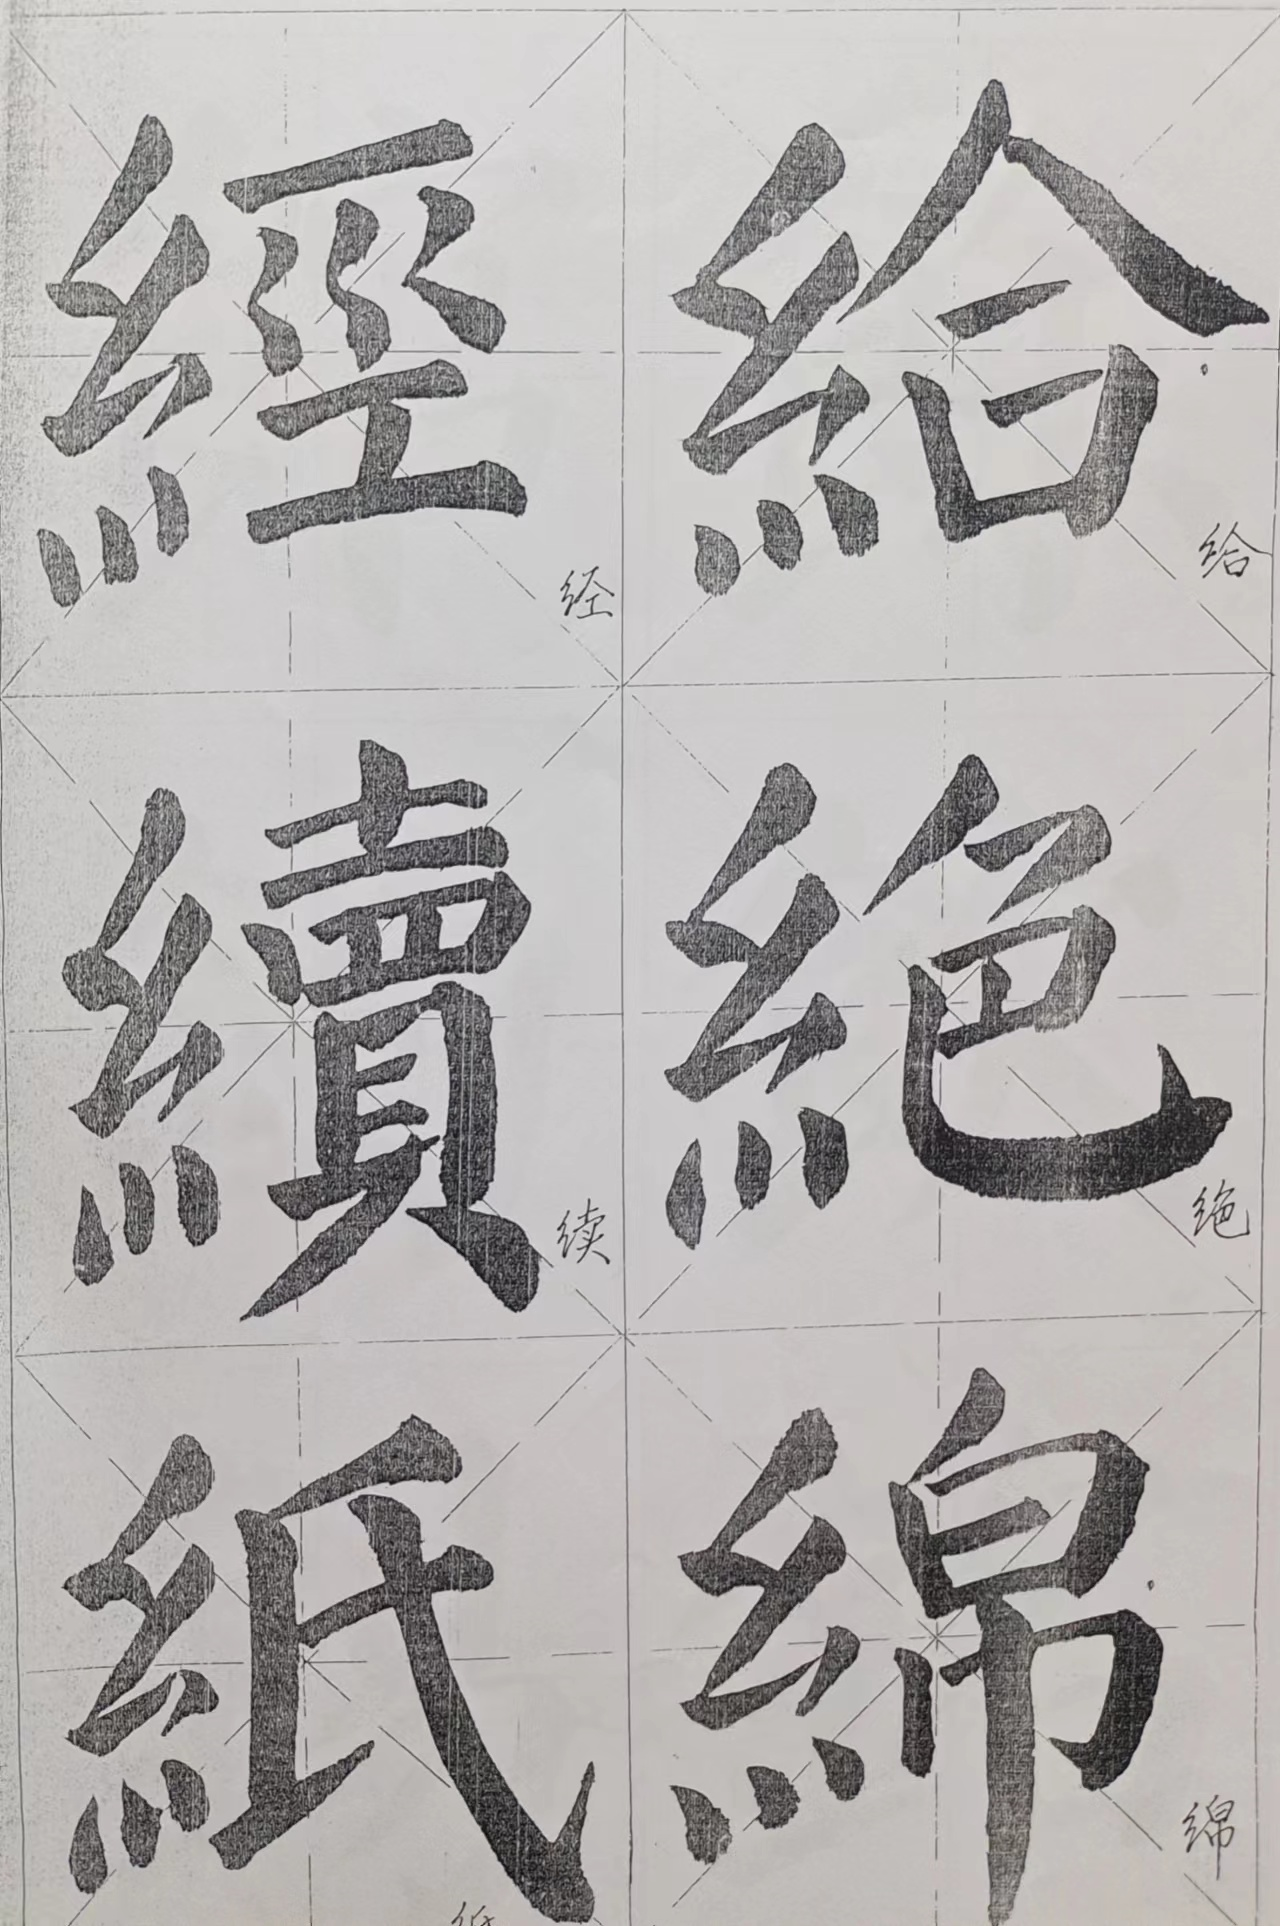 經 給
经 给
續 絕
续 绝
紙 綿
纸 绵